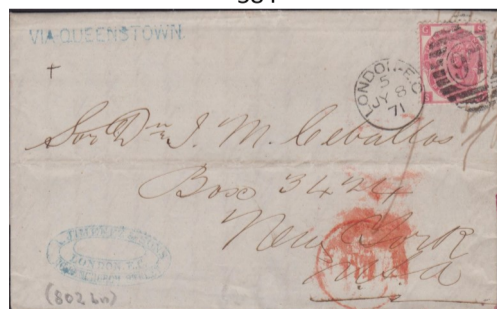 VIA-QUEENSTOWN.
LONDON.E.C
5
JY 8
71
Sor Dn J. M. Ceballos
Box 3424
New York
U.S.A
LONDON E.C.
(802 bn)